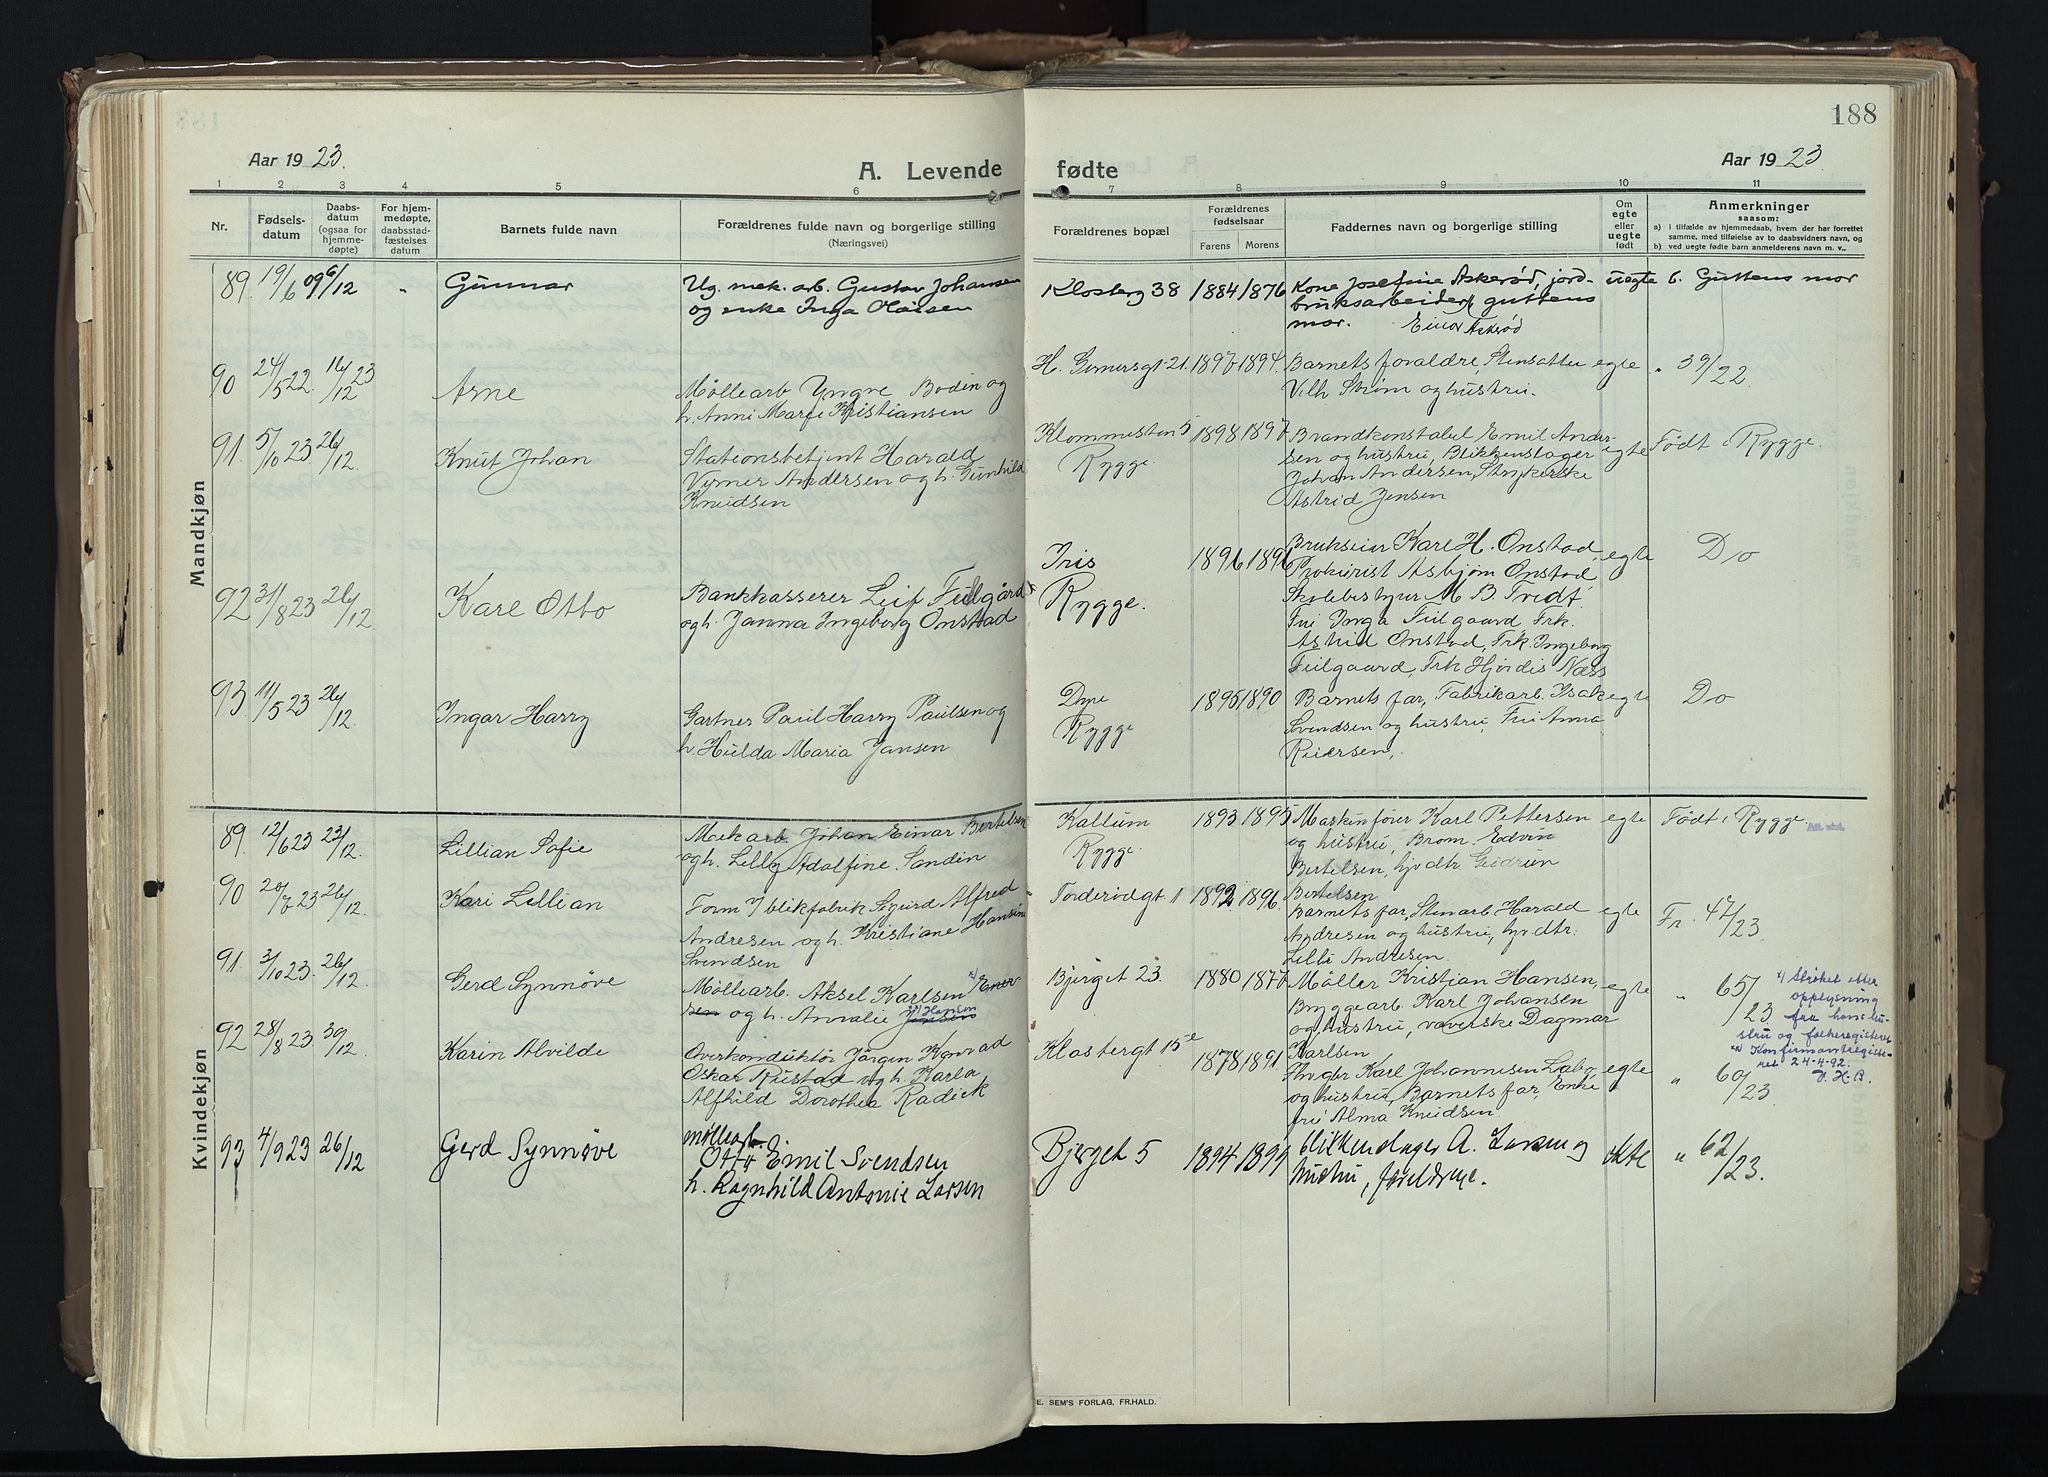 188
Aar 1923.
A. Levende
fødte
Aar 1923
1 2 3 4 5 6 7 8 9 10 11
Nr.
Fødsels-
datum
Daabs-
datum
(ogsaa for
hjemme-
døpte)
For hjem-
medøpte,
daabsstad-
fæstelses
datum
Barnets fulde navn
Forældrenes fulde navn og borgerlige stilling
(Næringsvei)
Forældrenes bopæl
Forældrenes
fødselsaar
Farens Morens
Faddernes navn og borgerlige stilling
Om
egte
eller
uegte
født
Anmerkninger
saasom:
a) I tilfælde av hjemmedaab, hvem der har forrettet
samme, med tilføielse av to daabsvidners navn, og
b) ved uegte fødte barn anmelderens navn m. v.,
Mandkjøn
89 19/6 09 6/12 " Gunnar
Ug. mek. arb. Gustav Johansen
og enke Inga Olaisen
Klosterg 38 1884 1876
Kone Josefine Askerød, jord-
bruksarbeider guttens
mor. Einar Askrød
uegte b. Guttens mor
90 24/5 22. 16/12 23 Arne
Møllearb Yngve Bodin og
h. Anni Marie Kristiansen
H. Gernersgt 21. 1897 1894.
Barnets foraldre, Stensatter
Vilh Strøm og hustru.
egte " 39/22.
91. 5/10 23. 26/12. Knut Johan
Stationsbetjent Harald
Verner Andersen og h. Gunhild
Knudsen
Klommesten 5
Rygge.
1898 1897
Brandkonstabel Emil Ander-
sen og hustru, Blikkenslager
Johan Andersen, Strykerske
Astrid Jensen
egte Født i Rygge.
92 31/8 23 26/12. Karl Otto
Bankkasserer Leif Fulgård
og h. Janna Ingeborg Onstad
Iris
Rygge.
1896 1896
Brukseier Karl H. Onstad,
Prokurist Asbjørn Onstad
Skolebestyrer M. B. Tvedt.
Fru Inga Fulgaard Frk.
Astrid Onstad, Frk. Ingeborg
Fulgaard, Frk Hjørdis Næss
egte Do
93. 11/5 23 26/12. Ingar Harry
Gartner Paul Harry Paulsen og
h. Hulda Maria Jansen
Dype
Rygge
1895 1890
Barnets far, Fabrikarb. Isak
Svendsen og hustru, Fru Anna
Reiersen,
egte Do
Kvindekjøn
89. 12/6 23 23/12. Lillian Sofie
Mek arb. Johan Einar Bertelsen
og h. Lilly Adolfine Sandin
Kallum
Rygge.
1893 1895
Maskinfører Karl Pettersen
og hustru, Brom. Edvin
Bertelsen, hjv dtr. Gudrun
Bertelsen
egte Født i Rygge
90 20/7 23 26/12. Kari Lillian
Form. i blikfabrik Sigurd Alfred
Andresen og h. Kristiane Hansine
Svendsen
Torderødgt 1 1892 1896.
Barnets far, Stenarb Harald
Andresen og hustru, hjv dtr.
Lilli Andresen.
egte Fr. 47/23.
91. 3/10 23. 26/12. Gerd Synnøve
Møllearb. Aksel Karlsen x) Ener-
sen og h. Amalie Jensen Hansen
Bjerget 23. 1880 1877
Møller Kristian Hansen,
Bryggearb. Karl Johansen
og hustru, væverske Dagmar
Karlsen
egte " 65/23
x) Strøket etter
opplysning
fra hans hu-
stru og folkeregisteret
Konfirmantregiste-
ret 24-4-92.
V. H. B.
92 28/8 23. 30/12. Karin Alvilde
Overkonduktør Jørgen Konrad
Oskar Rustad og h. Karla
Alfhild Dorothea Radick
Klostergt 15e 1878 1891
Karl Johannesen Labo
og hustru, Barnets far, Enke
fru Alma Knudsen.
egte " 60/23.
93 4/9 23 26/12 Gerd Synnøve
Møllearb.
Otto Emil Svendsen
h. Ragnhild Antonie Larsen
Bjerget 5 1894 1899
blikkenslager A. Larsen og
hustru, foreldrene.
ekte " 62/23.
E. SEM'S FORLAG, FR.HALD.